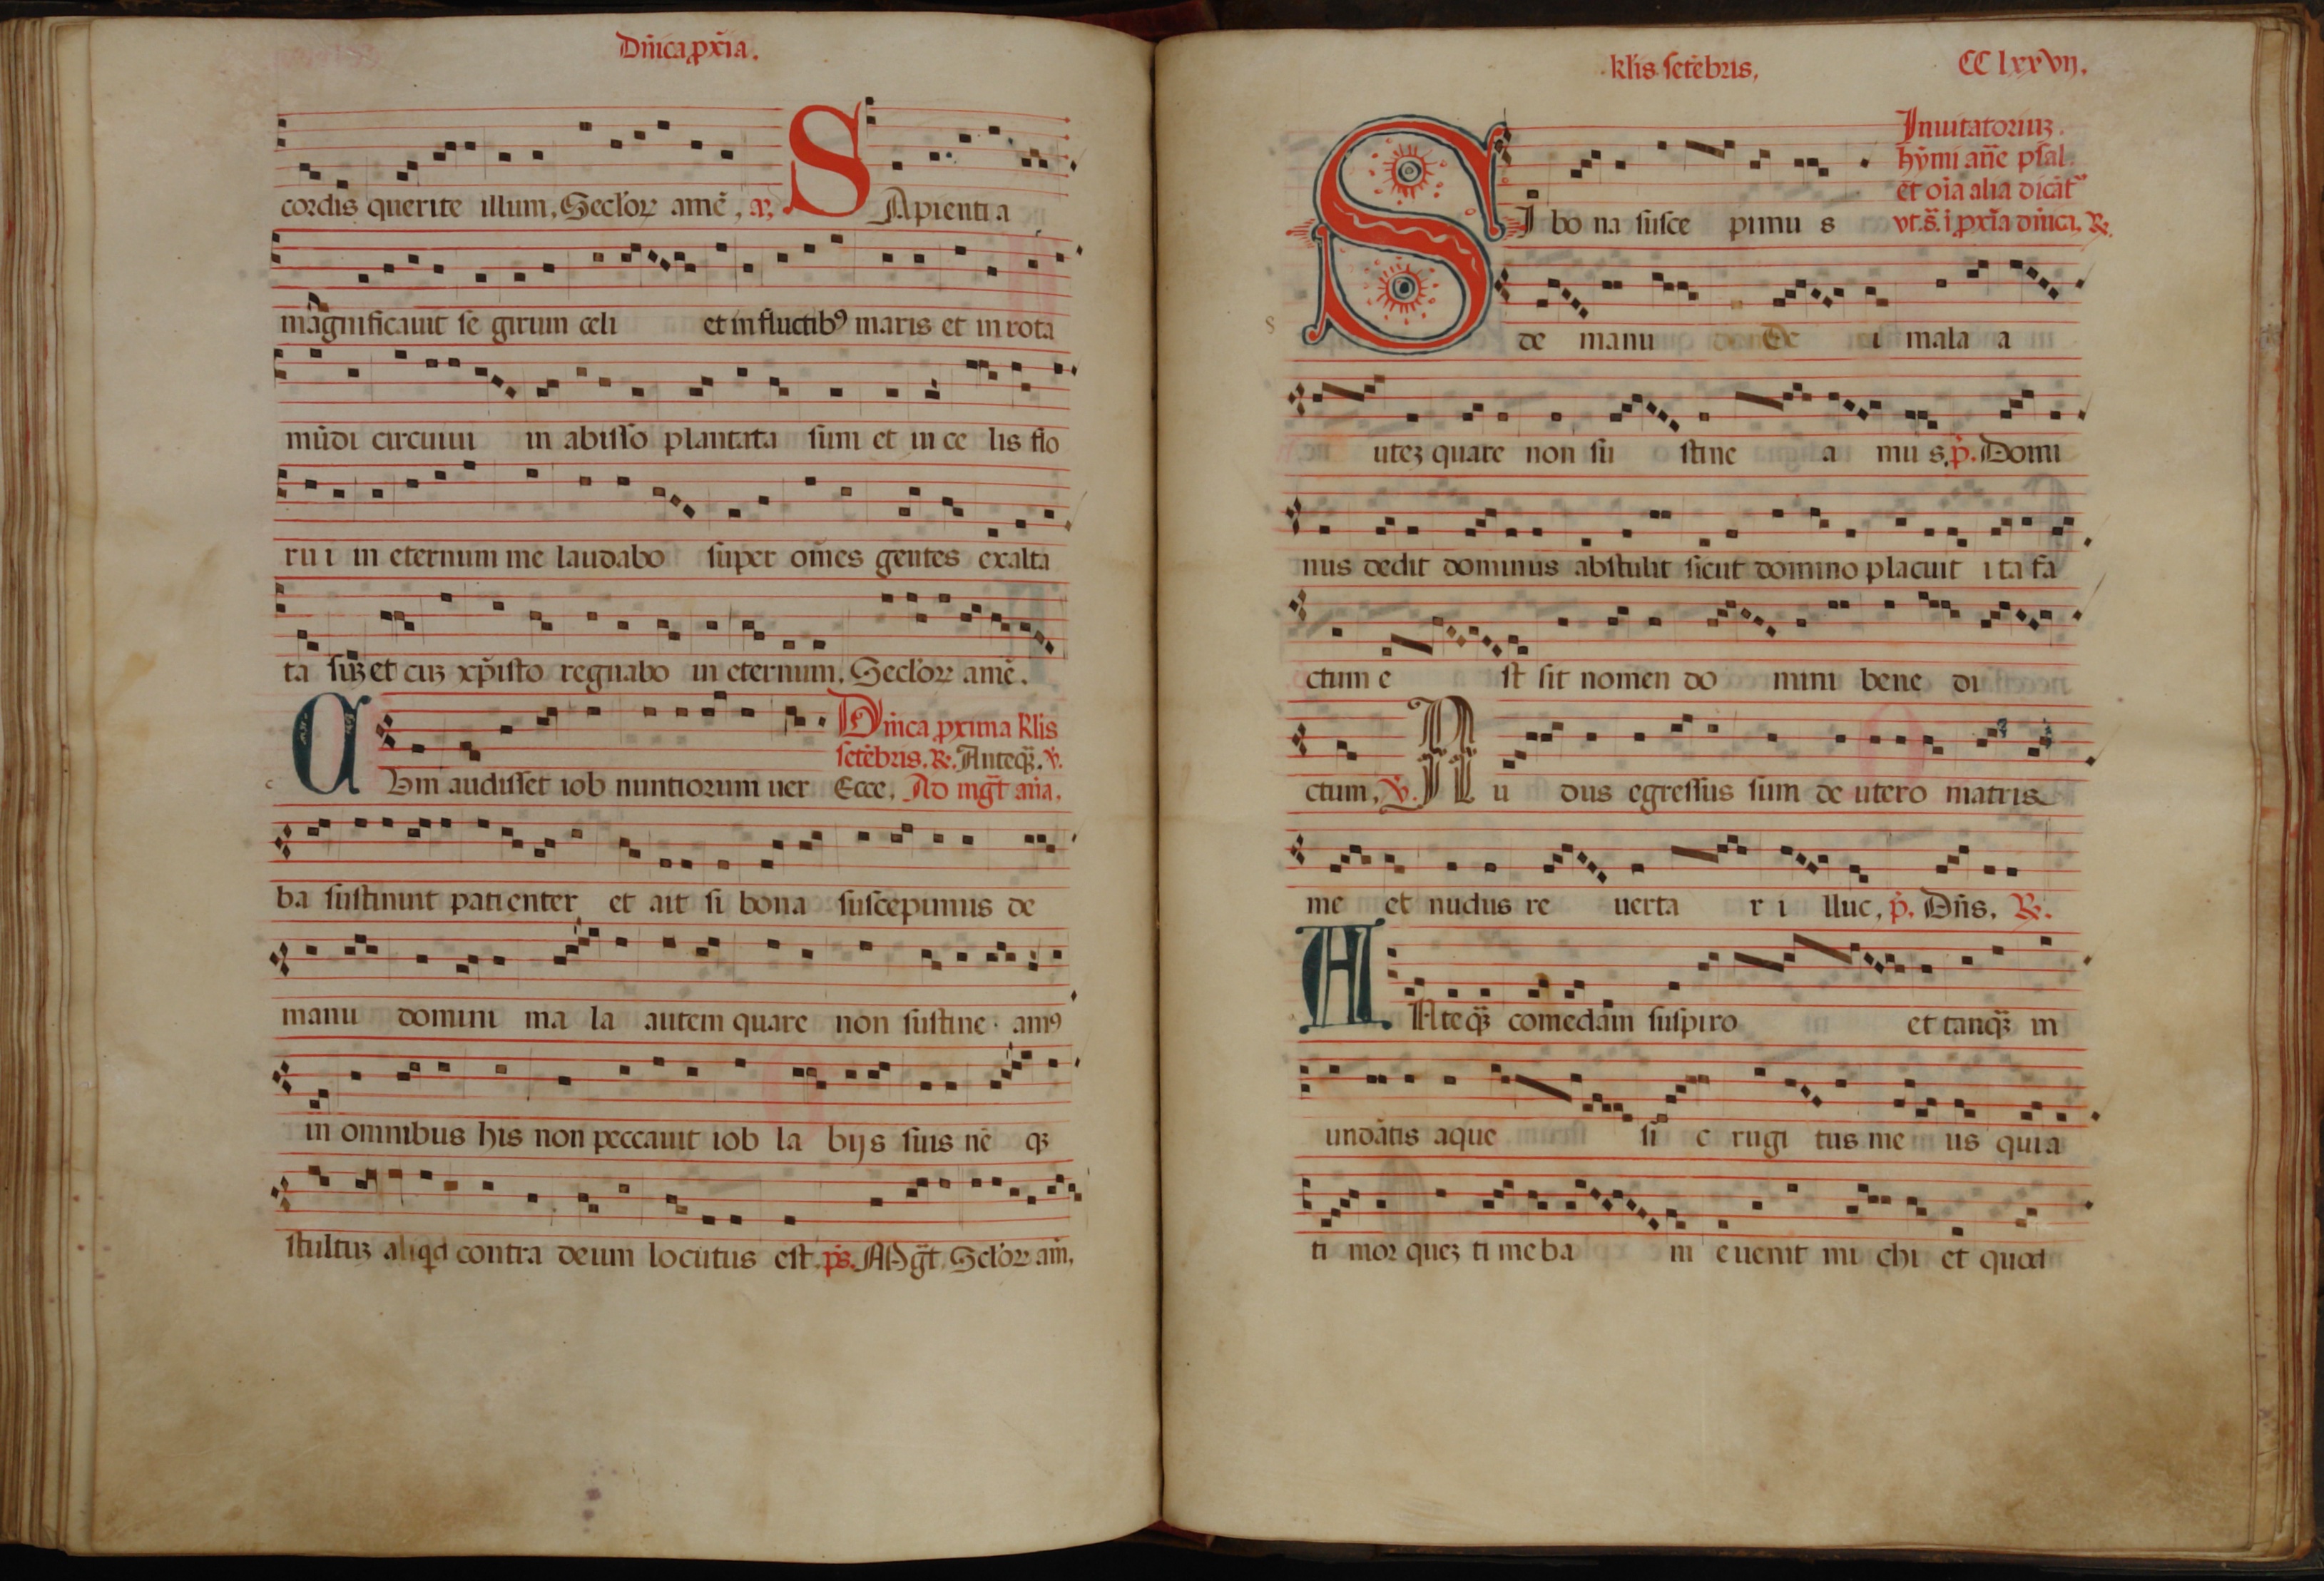 Dñica pxĩa.
cordis querite illum, Seclor̃ amẽ, a᷒,
SApientia
magnificauit se girum celi et in fluctib⁹ maris et in rota
mũdi circuiui in abisso plantata sum et in ce lis flo
ru i in eternum me laudabo super om̃es gentes exalta
ta suꝫ et cuꝫ xp̃isto regnabo in eternum, Seclor̃ amẽ.
Dñica pxima klis
setẽbris, ℟. Anteqꝫ̃. ℣.
Ecce, Ad mg̃t añа,
Cvm audisset iob nuntiorum uer
ba sustinuit patienter et ait si bona suscepimus de
manu domini ma la autem quare non sustine am⁹
in omnibus his non peccauit iob la bijs suis nẽ qꝫ
stultuꝫ aliqd contra deum locutus est, p̃s. Mg̃t, Sclor̃ am̃,
klis setẽbris,
CC lxxvij,
Inuitatoriuꝫ.
hỹmi añe psal.
et oĩa alia dicãt᷒
vt. s̃. ĩ pxĩa dñica, ℟.
SI bo na susce pimu s
de manu de i mala a
uteꝫ quare non su stine a mu s, p̃. Domi
nus dedit dominus abstulit sicut domino placuit i ta fa
ctum e st sit nomen do mini bene di
ctum, ℣. Nu dus egressus sum de utero matris
me et nudus re uerta r i lluc, p̃. Dñs, ℟.
ANteqꝫ̃ comedam suspiro et tanqꝫ̃ in
undatis aque si c rugi tus me us quia
ti mor queꝫ ti me ba m euenit mi chi et quod